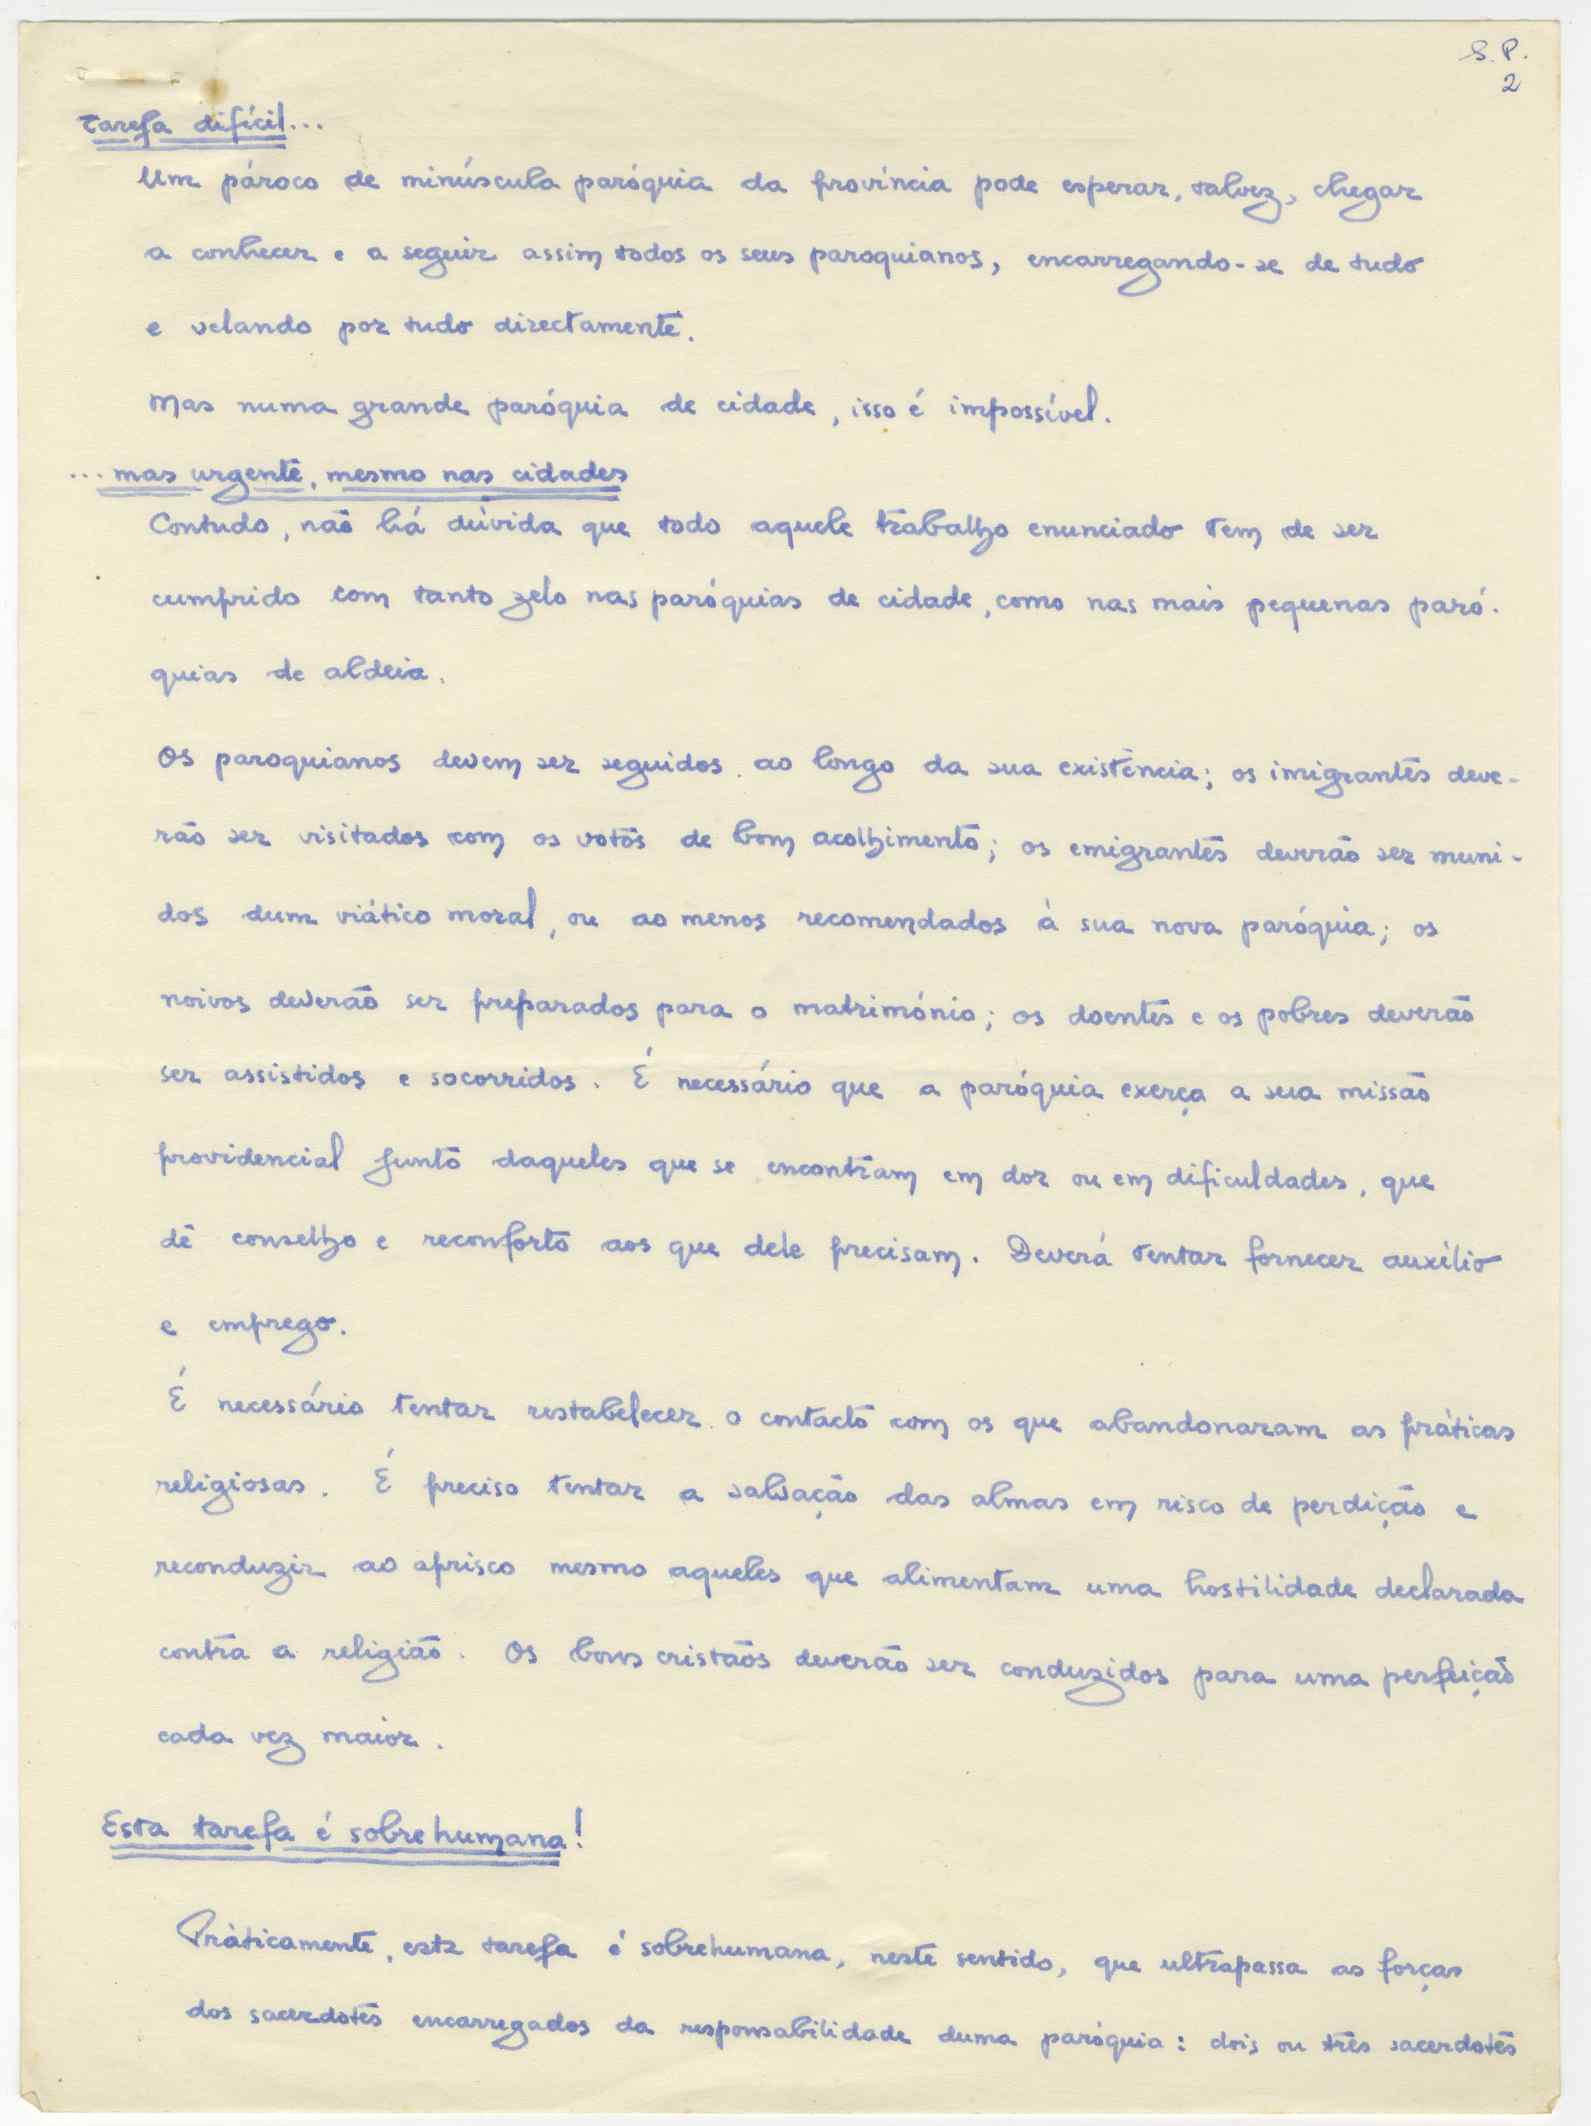 S. P.
2
Tarefa difícil...
Um pároco de minúscula paróquia da província pode esperar, talvez, chegar
a conhecer e a seguir assim todos os seus paroquianos, encarregando-se de tudo
e velando por tudo directamente.
Mas numa grande paróquia de cidade, isso é impossível.
... mas urgente, mesmo nas cidades
Contudo, não há dúvida que todo aquele trabalho enunciado tem de ser
cumprido com tanto zelo nas paróquias de cidade, como nas mais pequenas paró-
quias de aldeia.
Os paroquianos devem ser seguidos ao longo da sua existência; os imigrantes deve-
rão ser visitados com os votos de bom acolhimento; os emigrantes deverão ser muni-
dos dum viático moral, ou ao menos recomendados à sua nova paróquia; os
noivos deverão ser preparados para o matrimónio; os doentes e os pobres deverão
ser assistidos e socorridos. É necessário que a paróquia exerça a sua missão
providencial junto daqueles que se encontram em dor ou em dificuldades, que
dê conselho e reconforto aos que dele precisam. Deverá tentar fornecer auxílio
e emprego.
É necessário tentar restabelecer o contacto com os que abandonaram as práticas
religiosas. É preciso tentar a salvação das almas em risco de perdição e
reconduzir ao aprisco mesmo aqueles que alimentam uma hostilidade declarada
contra a religião. Os bons cristãos deverão ser conduzidos para uma perfeição
cada vez maior.
Esta tarefa é sobrehumana!
Pràticamente, esta tarefa é sobrehumana, neste sentido, que ultrapassa as forças
dos sacerdotes encarregados da responsabilidade duma paróquia: dois ou três sacerdotes